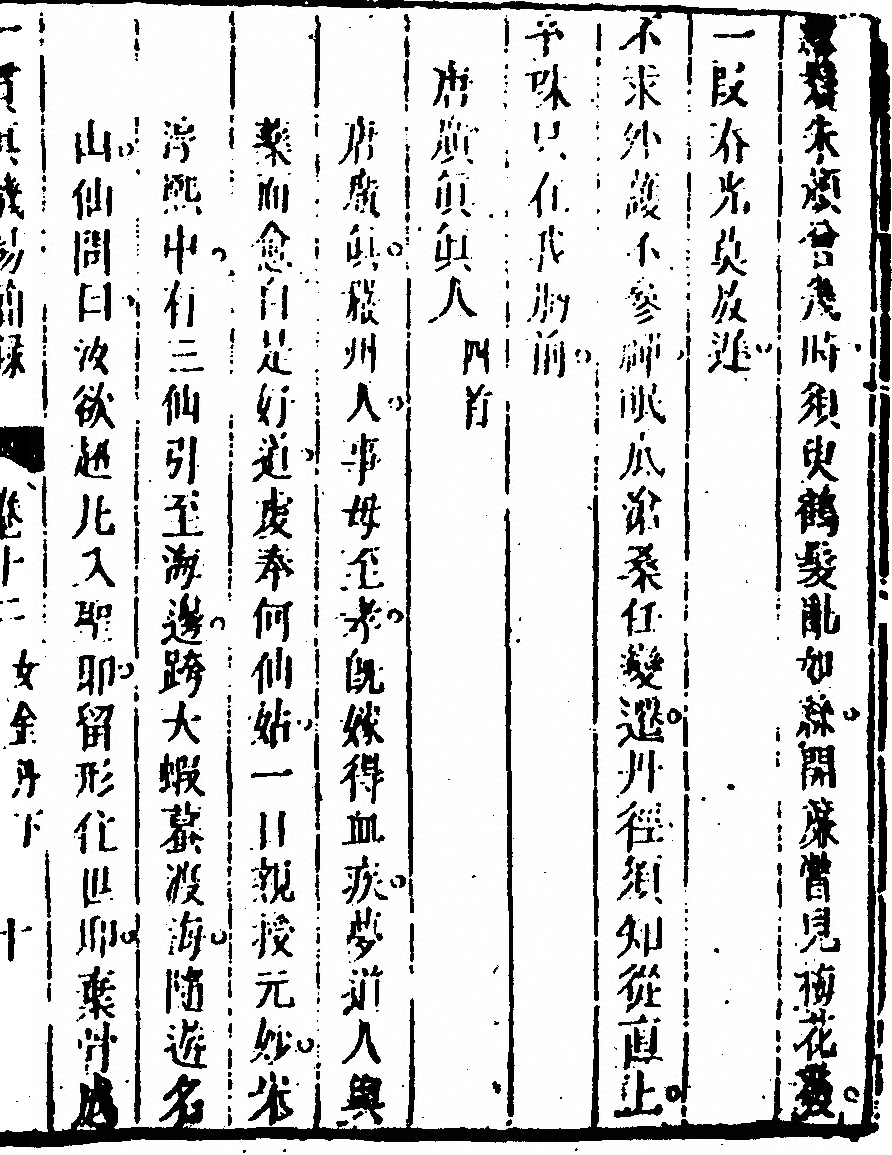 朱顏曾幾時須臾鶴髮亂如絲開簾曾見梅花發
一段春光莫放遲
不求外護不參禪眠底滄桑任變遷丹徑須知從直上
平昧只在我胸前
唐廣真真人 四首
唐廣真嚴州人事母至孝既嫁得血疾夢道人與
藥而愈自是好道虔奉何仙姑一日親授元妙宋
淳熙中有三仙引至海邊跨大蝦蟇渡海隨遊名
山仙問曰汝欲超凡入聖耶留形住世耶棄骨成
一貫真機易簡錄 卷十二 女金丹下 十